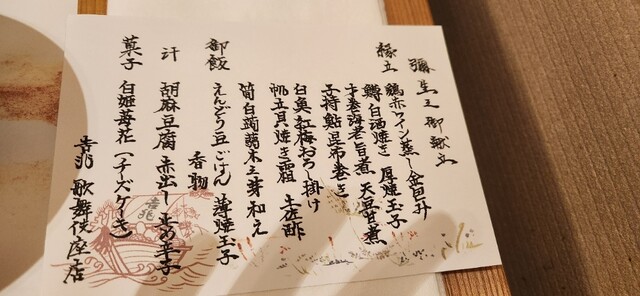 彌生之御献立
縁立 鶏赤ワイン蒸し金目斗
鱒白酒焼き 厚焼玉子
才巻海老旨煮 天豆甘煮
子持鮎昆布巻き
白魚紅梅おろし掛け
帆立貝焼き霜 土佐酢
筍白蒟蒻木之芽和え
御飯 えんどう豆ごはん 薄焼玉子
香物
汁 胡麻豆腐 赤出し
菓子 白姫苺花(チーズケーキ)
吉兆 歌舞伎座店
吉兆